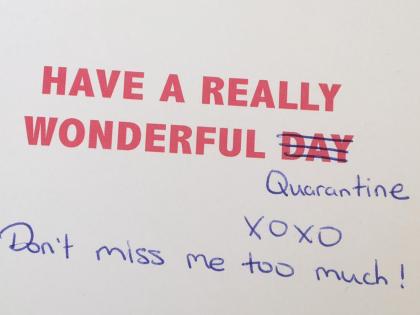 HAVE A REALLY
WONDERFUL DAY
Quarantine
XOXO
Don't miss me too much!